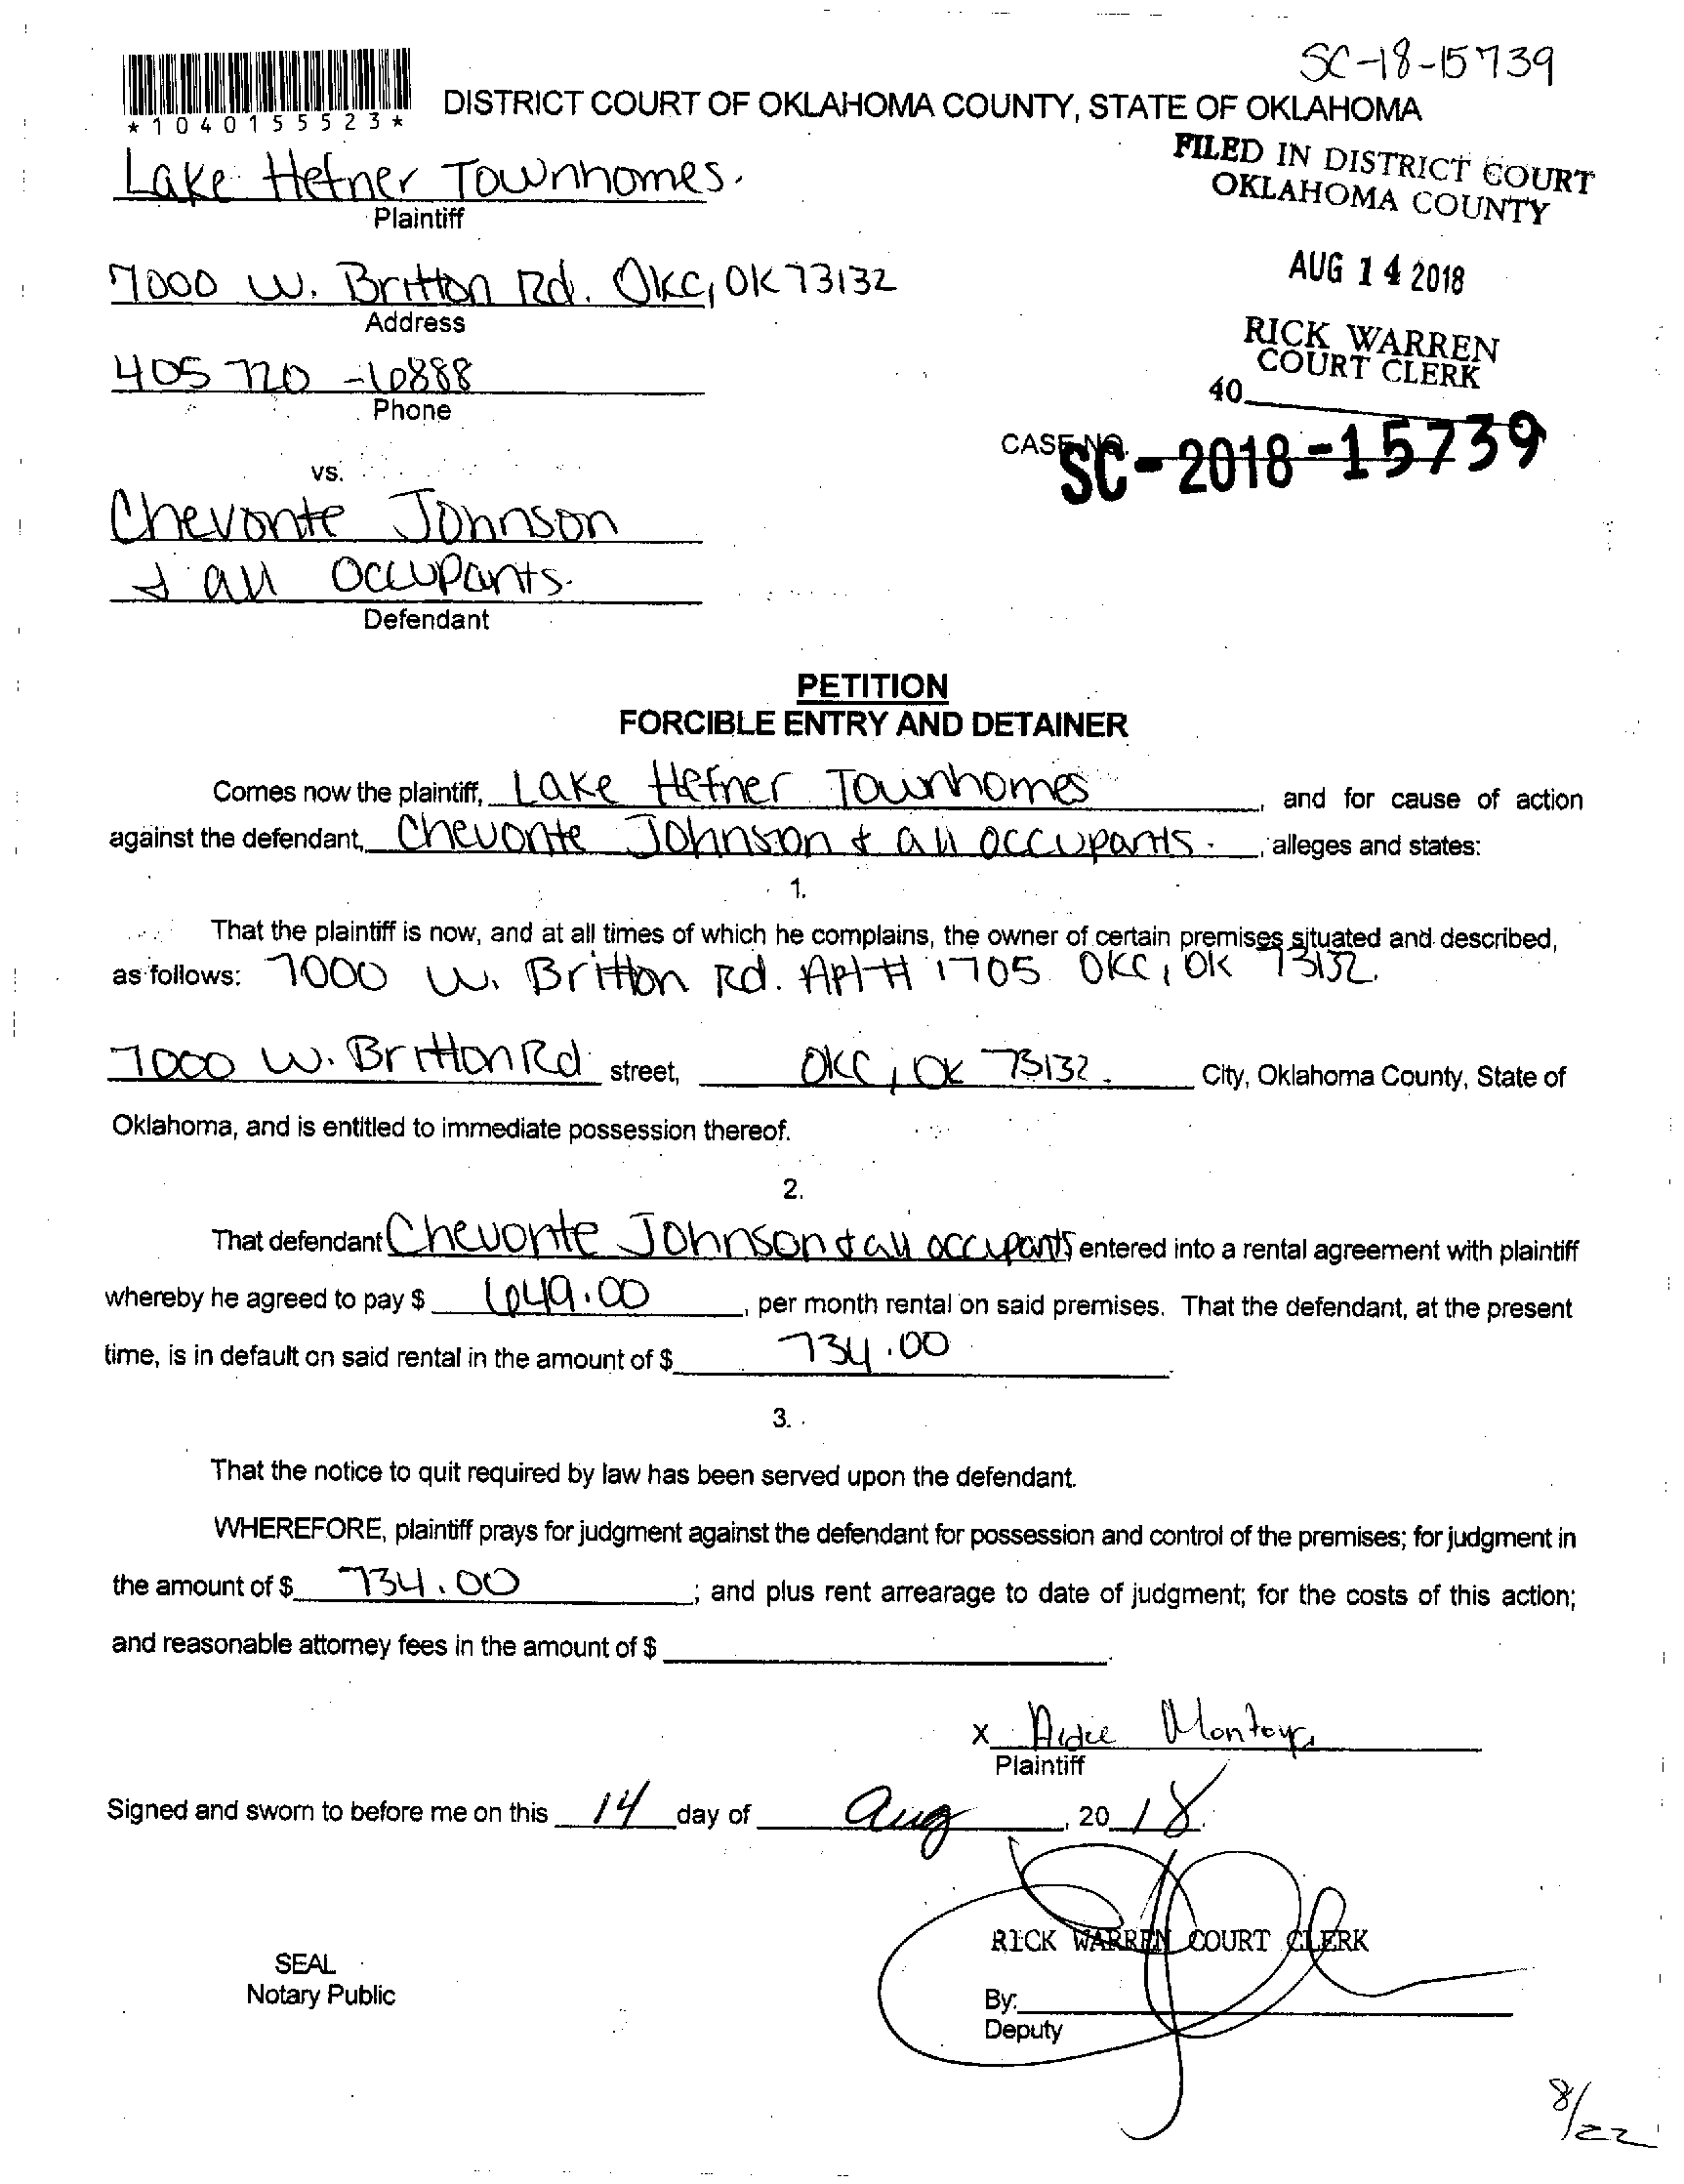 SC-18-15739
*1040155523*
DISTRICT COURT OF OKLAHOMA COUNTY, STATE OF OKLAHOMA
FILED IN DISTRICT COURT
OKLAHOMA COUNTY
Lake Hefner Townhomes.
Plaintiff
AUG 14 2018
7000 W. Britton Rd. OKC, OK 73132
Address
RICK WARREN
COURT CLERK
40
405 720-6888
Phone
CASE NO.
SC-2018-15739
vs.
Chevonte Johnson
& all occupants.
Defendant
PETITION
FORCIBLE ENTRY AND DETAINER
Comes now the plaintiff, Lake Hefner Townhomes, and for cause of action
against the defendant, Chevonte Johnson & all occupants., alleges and states:
1.
That the plaintiff is now, and at all times of which he complains, the owner of certain premises situated and described,
as follows: 7000 W. Britton Rd. Apt # 1705 OKC, OK 73132.
7000 W. Britton Rd street, OKC, OK 73132. City, Oklahoma County, State of
Oklahoma, and is entitled to immediate possession thereof.
2.
That defendant Chevonte Johnson & all occupants entered into a rental agreement with plaintiff
whereby he agreed to pay $ 649.00, per month rental on said premises. That the defendant, at the present
time, is in default on said rental in the amount of $ 734.00.
3.
That the notice to quit required by law has been served upon the defendant.
WHEREFORE, plaintiff prays for judgment against the defendant for possession and control of the premises; for judgment in
the amount of $ 734.00; and plus rent arrearage to date of judgment; for the costs of this action;
and reasonable attorney fees in the amount of $
X Montoya
Plaintiff
Signed and sworn to before me on this 14 day of Aug, 20 18.
RICK WARREN COURT CLERK
SEAL
Notary Public
By:
Deputy
8/22